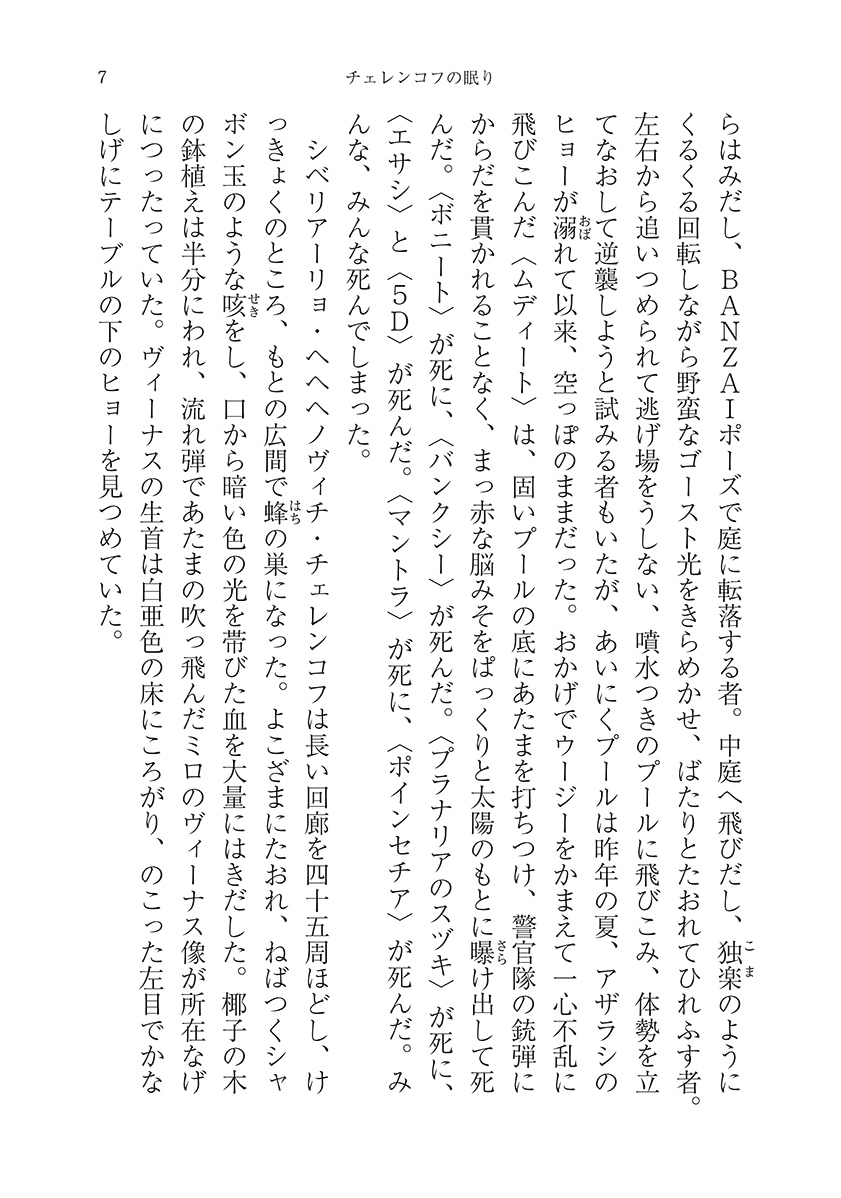 7
チェレンコフの眠り
らはみだし、BANZAIポーズで庭に転落する者。中庭へ飛びだし、独楽のように
こま
くるくる回転しながら野蛮なゴースト光をきらめかせ、ばたりとたおれてひれふす者。
左右から追いつめられて逃げ場をうしない、噴水つきのプールに飛びこみ、体勢を立
てなおして逆襲しようと試みる者もいたが、あいにくプールは昨年の夏、アザラシの
ヒョーが溺れて以来、空っぽのままだった。おかげでウージーをかまえて一心不乱に
おぼ
飛びこんだ〈ムディート〉は、固いプールの底にあたまを打ちつけ、警官隊の銃弾に
からだを貫かれることなく、まっ赤な脳みそをぱっくりと太陽のもとに曝け出して死
さら
んだ。〈ボニート〉が死に、〈バンクシー〉が死んだ。〈プラナリアのスヅキ〉が死に、
〈エサシ〉と〈5D〉が死んだ。〈マントラ〉が死に、〈ポインセチア〉が死んだ。み
んな、みんな死んでしまった。
シベリアーリョ・ヘヘヘノヴィチ・チェレンコフは長い回廊を四十五周ほどし、け
っきょくのところ、もとの広間で蜂の巣になった。よこざまにたおれ、ねばつくシャ
はち
ボン玉のような咳をし、口から暗い色の光を帯びた血を大量にはきだした。椰子の木
せき
の鉢植えは半分にわれ、流れ弾であたまの吹っ飛んだミロのヴィーナス像が所在なげ
につったっていた。ヴィーナスの生首は白亜色の床にころがり、のこった左目でかな
しげにテーブルの下のヒョーを見つめていた。